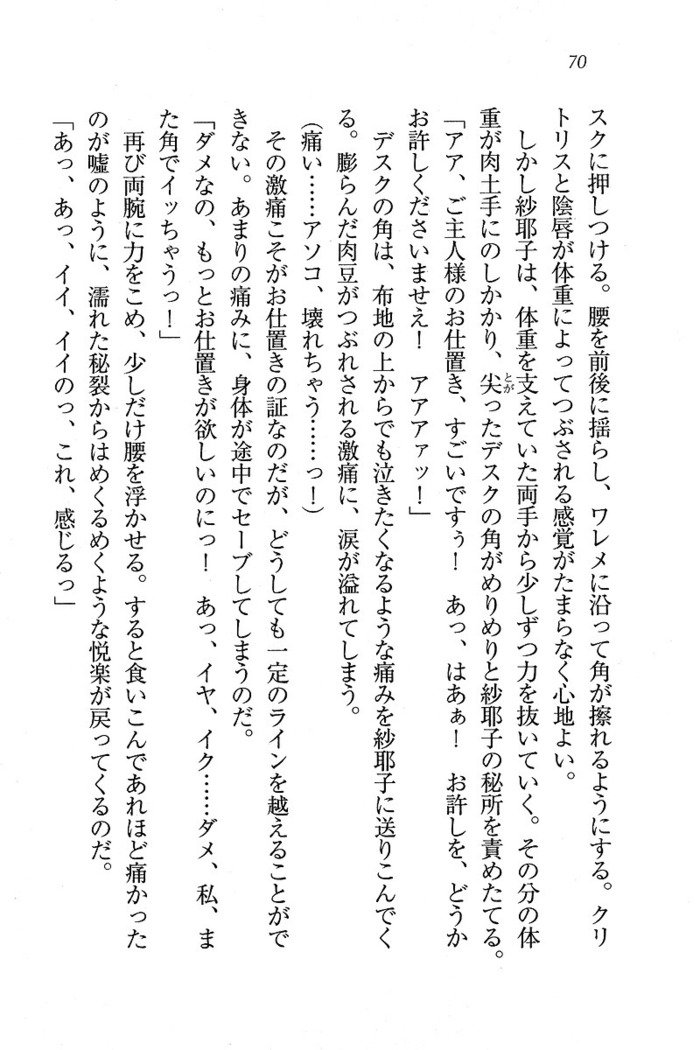 70
スクに押しつける。腰を前後に揺らし、ワレメに沿って角が擦れるようにする。クリ
トリスと陰唇が体重によってつぶされる感覚がたまらなく心地よい。
しかし紗耶子は、体重を支えていた両手から少しずつ力を抜いていく。その分の体
重が肉土手にのしかかり、尖ったデスクの角がめりめりと紗耶子の秘所を責めたてる。
とが
「アア、ご主人様のお仕置き、すごいですぅ!　あっ、はあぁ!　お許しを、どうか
お許しくださいませえ!　アアアァッ!」
デスクの角は、布地の上からでも泣きたくなるような痛みを紗耶子に送りこんでく
る。膨らんだ肉豆がつぶれされる激痛に、涙が溢れてしまう。
(痛い……アソコ、壊れちゃう……っ!)
その激痛こそがお仕置きの証なのだが、どうしても一定のラインを越えることがで
きない。あまりの痛みに、身体が途中でセーブしてしまうのだ。
「ダメなの、もっとお仕置きが欲しいのにっ!　あっ、イヤ、イク……ダメ、私、ま
た角でイッちゃうっ!」
再び両腕に力をこめ、少しだけ腰を浮かせる。すると食いこんであれほど痛かった
のが嘘のように、濡れた秘裂からはめくるめくような悦楽が戻ってくるのだ。
「あっ、あっ、イイ、イイのっ、これ、感じるっ」